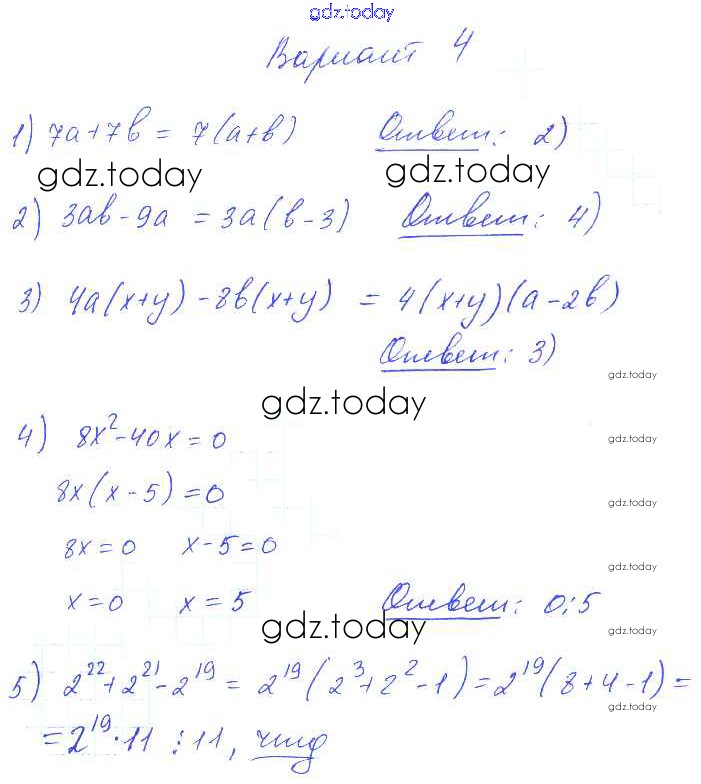 gdz.today
Вариант 4
1) 7a+7b = 7(a+b) Ответ: 2)
gdz.today gdz.today
2) 3ab-9a = 3a(b-3) Ответ: 4)
3) 4a(x+y)-8b(x+y) = 4(x+y)(a-2b)
Ответ: 3)
gdz.today
gdz.today
4) 8x²-40x=0
gdz.today
8x(x-5)=0
gdz.today
8x=0 x-5=0
gdz.today
x=0 x=5 Ответ: 0;5
gdz.today gdz.today
5) 2²²+2²¹-2¹⁹ = 2¹⁹(2³+2²-1)=2¹⁹(8+4-1)=
gdz.today
=2¹⁹·11 ⋮11, чтд
gdz.today